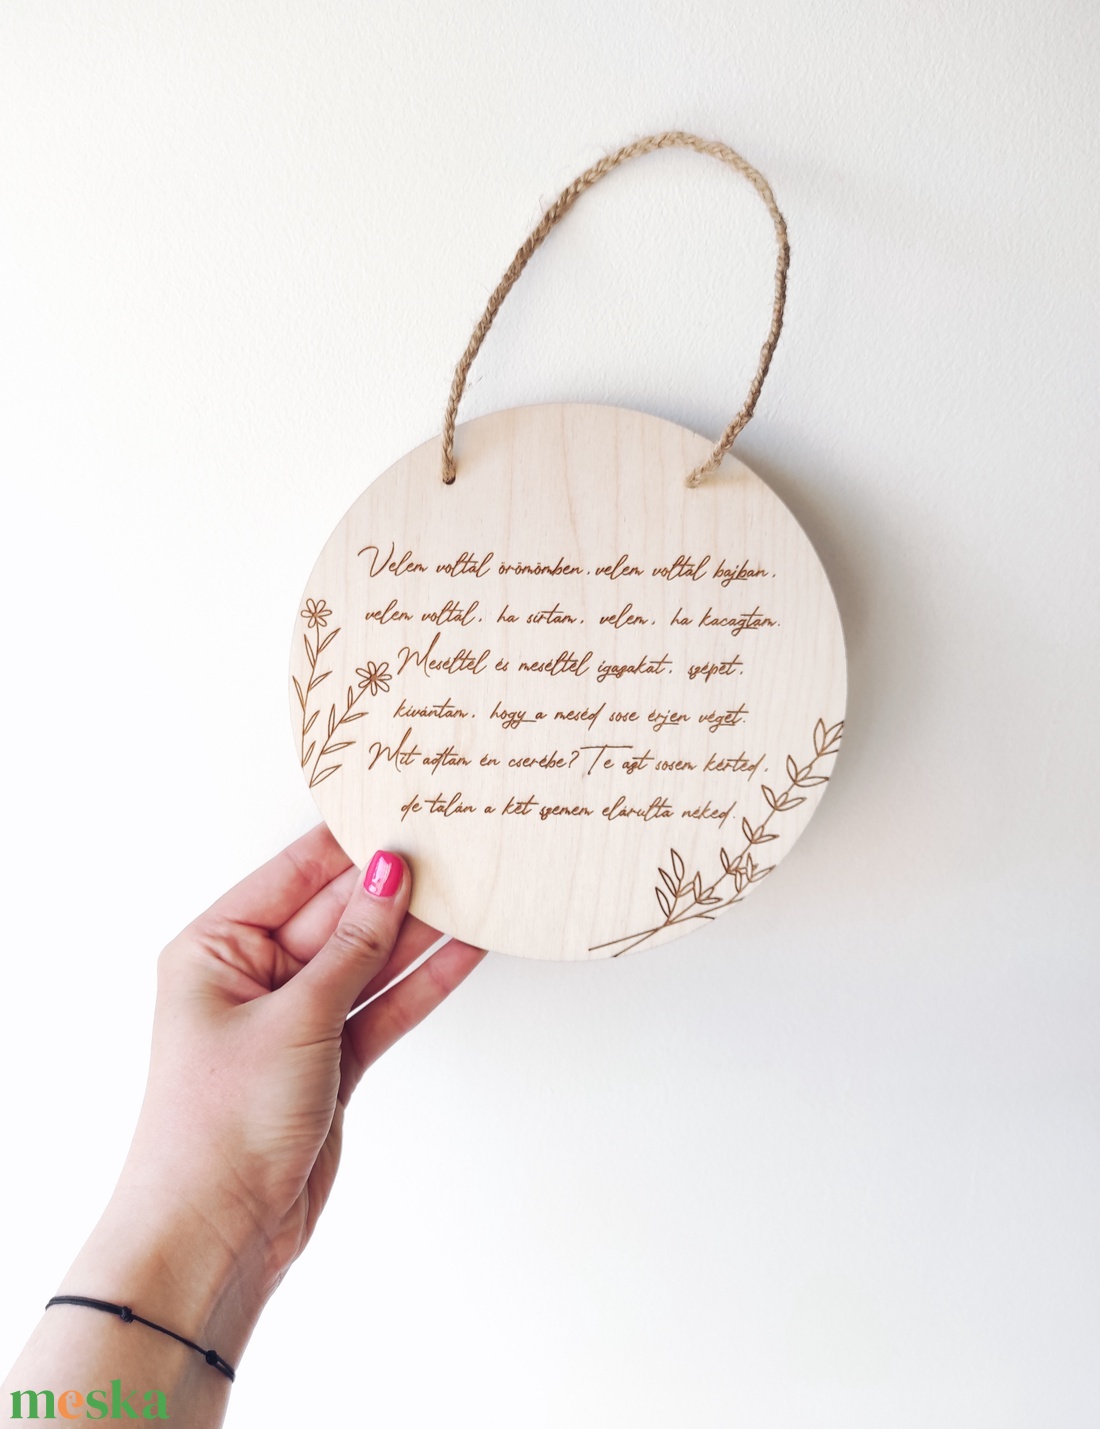 Velem voltál örömömben, velem voltál bajban,
velem voltál, ha sírtam, velem, ha kacagtam.
Meséltél és meséltél igazakat, szépet,
kívántam, hogy a meséd sose érjen véget.
Mit adtam én cserébe? Te azt sosem kérted,
de talán a két szemem elárulta néked.
meska